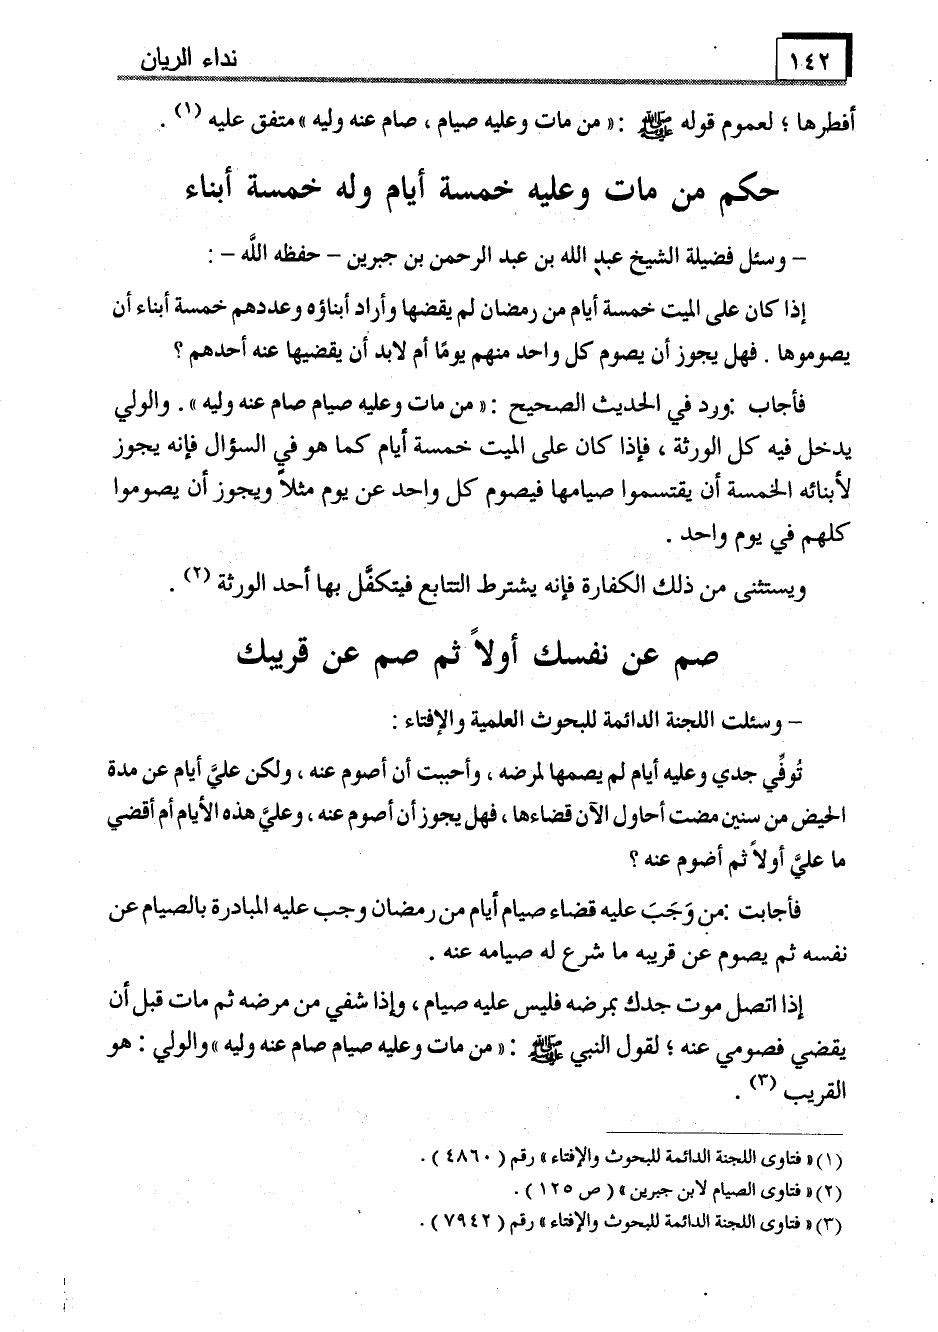 ١٤٢ نداء الريان
أفطرها ؛ لعموم قوله ﷺ : « من مات وعليه صيام ، صام عنه وليه » متفق عليه (١) .
حكم من مات وعليه خمسة أيام وله خمسة أبناء
– وسئل فضيلة الشيخ عبد الله بن عبد الرحمن بن جبرين – حفظه اللَّه – :
إذا كان على الميت خمسة أيام من رمضان لم يقضها وأراد أبناؤه وعددهم خمسة أبناء أن
يصوموها . فهل يجوز أن يصوم كل واحد منهم يومًا أم لابد أن يقضيها عنه أحدهم ؟
فأجاب : ورد في الحديث الصحيح : « من مات وعليه صيام صام عنه وليه » . والولي
يدخل فيه كل الورثة ، فإذا كان على الميت خمسة أيام كما هو في السؤال فإنه يجوز
لأبنائه الخمسة أن يقتسموا صيامها فيصوم كل واحد عن يوم مثلاً ويجوز أن يصوموا
كلهم في يوم واحد .
ويستثنى من ذلك الكفارة فإنه يشترط التتابع فيتكفَّل بها أحد الورثة (٢) .
صم عن نفسك أولاً ثم صم عن قريبك
– وسئلت اللجنة الدائمة للبحوث العلمية والإفتاء :
تُوفِّي جدي وعليه أيام لم يصمها لمرضه ، وأحببت أن أصوم عنه ، ولكن عليَّ أيام عن مدة
الحيض من سنين مضت أحاول الآن قضاءها ، فهل يجوز أن أصوم عنه ، وعليَّ هذه الأيام أم أقضي
ما عليَّ أولاً ثم أضوم عنه ؟
فأجابت : من وَجَبَ عليه قضاء صيام أيام من رمضان وجب عليه المبادرة بالصيام عن
نفسه ثم يصوم عن قريبه ما شرع له صيامه عنه .
إذا اتصل موت جدك بمرضه فليس عليه صيام ، وإذا شفي من مرضه ثم مات قبل أن
يقضي فصومي عنه ؛ لقول النبي ﷺ : « من مات وعليه صيام صام عنه وليه » والولي : هو
القريب (٣) .
(١) « فتاوى اللجنة الدائمة للبحوث والإفتاء » رقم ( ٤٨٦٠ ) .
(٢) « فتاوى الصيام لابن جبرين » ( ص ١٢٥ ) .
(٣) « فتاوى اللجنة الدائمة للبحوث والإفتاء » رقم ( ٧٩٤٢ ) .